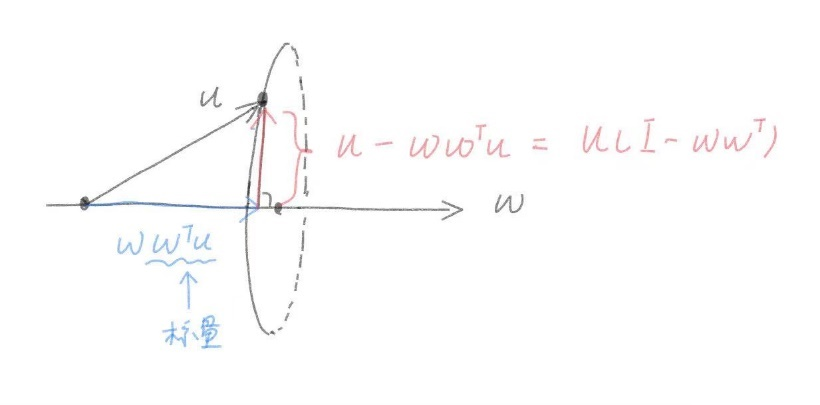 u
u - ww^T u = u(I - ww^T)
w
w w^T u
标量